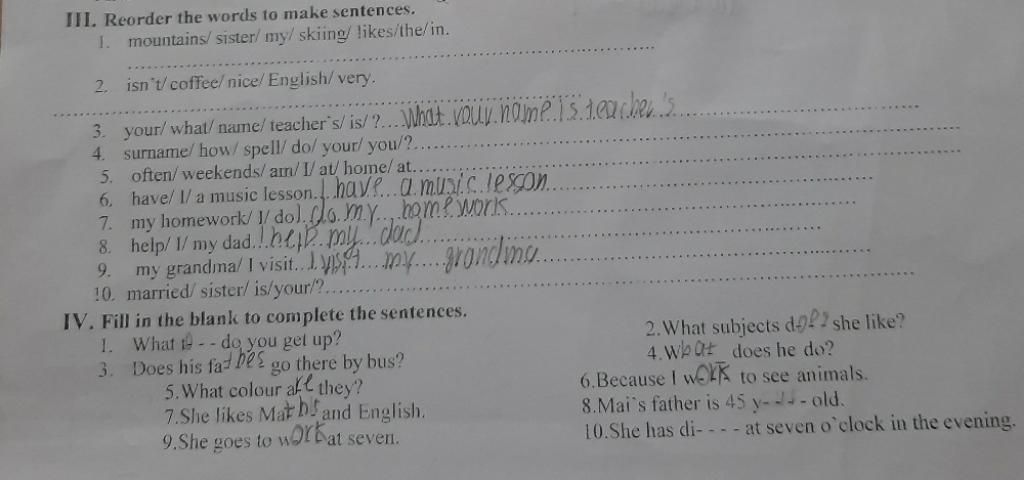 III. Reorder the words to make sentences.
1. mountains/ sister/ my/ skiing/ likes/the/in.
2. isn't/ coffee/ nice/ English/ very.
3. your/ what/ name/ teacher's/ is/ ?... What your name is teacher's
4. surname/ how/ spell/ do/ your/ you/?
5. often/ weekends/ am/ I/ at/ home/ at
6. have/ I/ a music lesson. I have a music lesson
7. my homework/ I/ do I do my homework
8. help/ I/ my dad. I help my dad
9. my grandma/ I visit I visit my grandma
10. married/ sister/ is/your/?
IV. Fill in the blank to complete the sentences.
1. What t - - do you get up? 2.What subjects does she like?
3. Does his fa go there by bus? 4.What does he do?
5.What colour are they? 6.Because I work to see animals.
7.She likes Maths and English. 8.Mai's father is 45 y---- old.
9.She goes to work at seven. 10.She has di- - - - at seven o'clock in the evening.